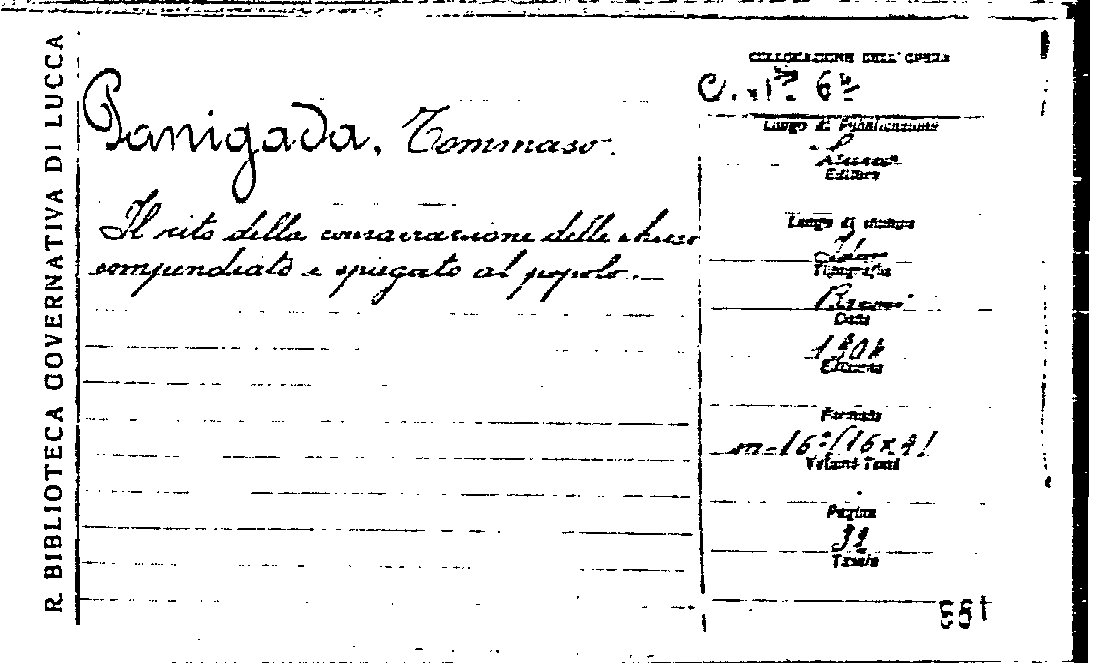 R. BIBLIOTECA GOVERNATIVA DI LUCCA
Panigada, Tommaso.
Il rito della consacrazione delle chiese
compendiato e spiegato al popolo.
COLLOCAZIONE DELL'OPERA
Luogo di Pubblicazione
Editore
Luogo di stampa
Tipografia
Data
Edizione
Formato
in-16°
Volumi Tomi
Pagine
Tavole